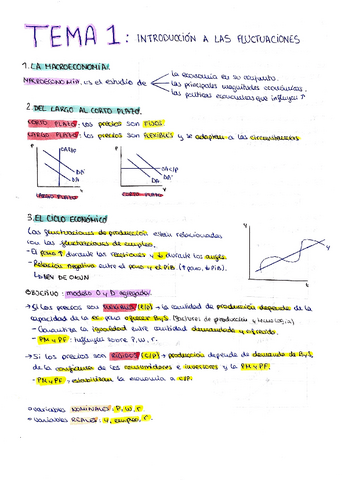 TEMA 1: INTRODUCCIÓN A LAS FLUCTUACIONES
1. LA MACROECONOMÍA.
MACROECONOMÍA: es el estudio de
la economía en su conjunto.
las principales magnitudes económicas.
las políticas económicas que influyen ↑
2. DEL LARGO AL CORTO PLAZO.
CORTO PLAZO: los precios son FIJOS.
LARGO PLAZO: los precios son FLEXIBLES y se adaptan a las circunstancias
P
OALP
DA'
DA
Y
LARGO PLAZO
P
OACP
DA'
DA
Y
CORTO PLAZO
3. EL CICLO ECONÓMICO
Las fluctuaciones de producción están relacionadas
con las fluctuaciones de empleo.
- El paro ↑ durante las recesiones y ↓ durante los auges.
- Relación negativa entre el paro y el PIB (↑ paro, ↓ PIB).
↳ LEY DE OKUN
Y
t
OBJETIVO: modelo O y D agregadas.
→ Si los precios son FLEXIBLES (L/P) → la cantidad de producción depende de la
capacidad de la ec. para ofrecer ByS. (factores de producción y tecnología)
- Garantiza la igualdad entre cantidad demandada y ofrecida.
- PM y PF: influyen sobre P, W, r.
→ Si los precios son RÍGIDOS (C/P) → producción depende de demanda de ByS,
de la confianza de los consumidores e inversores y la PM y PF.
- PM y PF: estabilizan la economía a C/P.
variables NOMINALES: P, W, r.
variables REALES: Y, empleo, r.